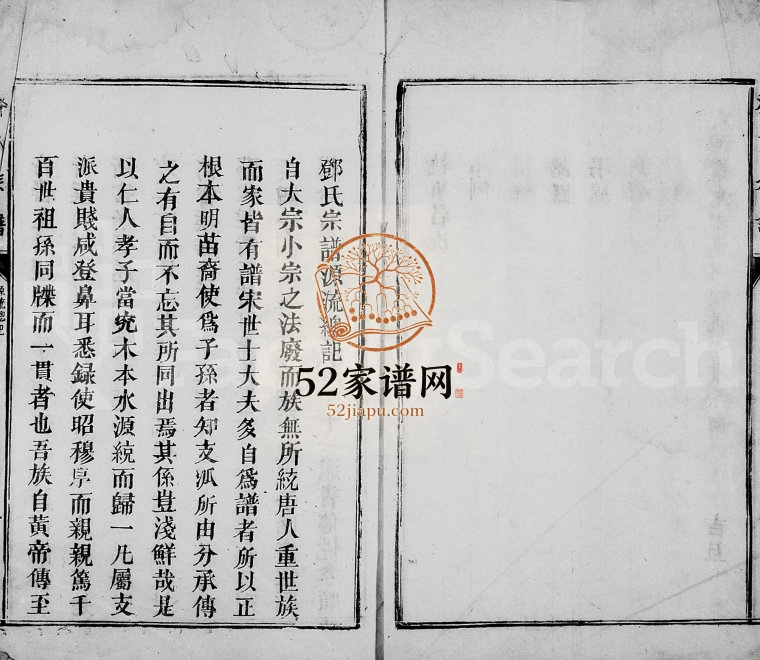 鄧氏宗譜源流總記
自大宗小宗之法廢而族無所統唐人重世族
而家皆有譜宋世士大夫多自爲譜者所以正
根本明苗裔使爲子孫者知支派所由分承傳
之有自而不忘其所同出焉其係豈淺鮮哉是
以仁人孝子當究木本水源統而歸一凡屬支
派貴賤咸登鼻耳悉録使昭穆序而親親篤千
百世祖孫同牒而一貫者也吾族自黃帝傳至
族譜
源流總記
52家谱网
52jiapu.com
FamilySearch